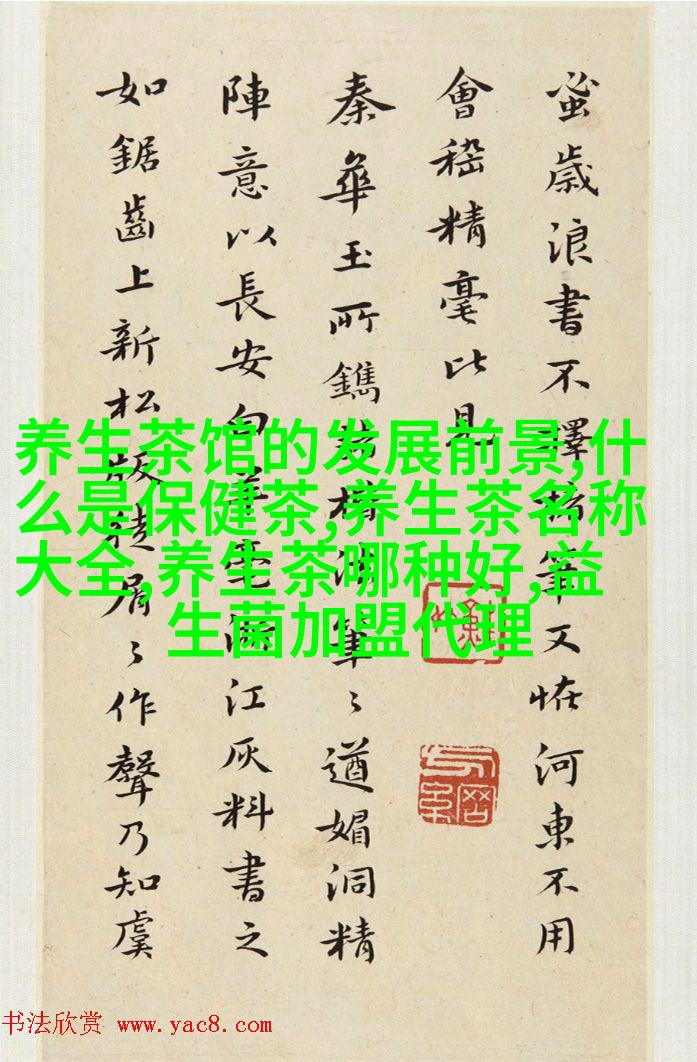 蚤歲浪書不擇筆又恠河東不用
會稽精毫比見
秦華玉所鐫法筆〻遒媚洞精
陣意以長安向江灰料書之
如鋸齒上新松版徒屑〻作聲乃知虞
养生茶馆的发展前景,什
么是保健茶,养生茶名称
大全,养生茶哪种好,益
生菌加盟代理
书法欣赏 www.yac8.com